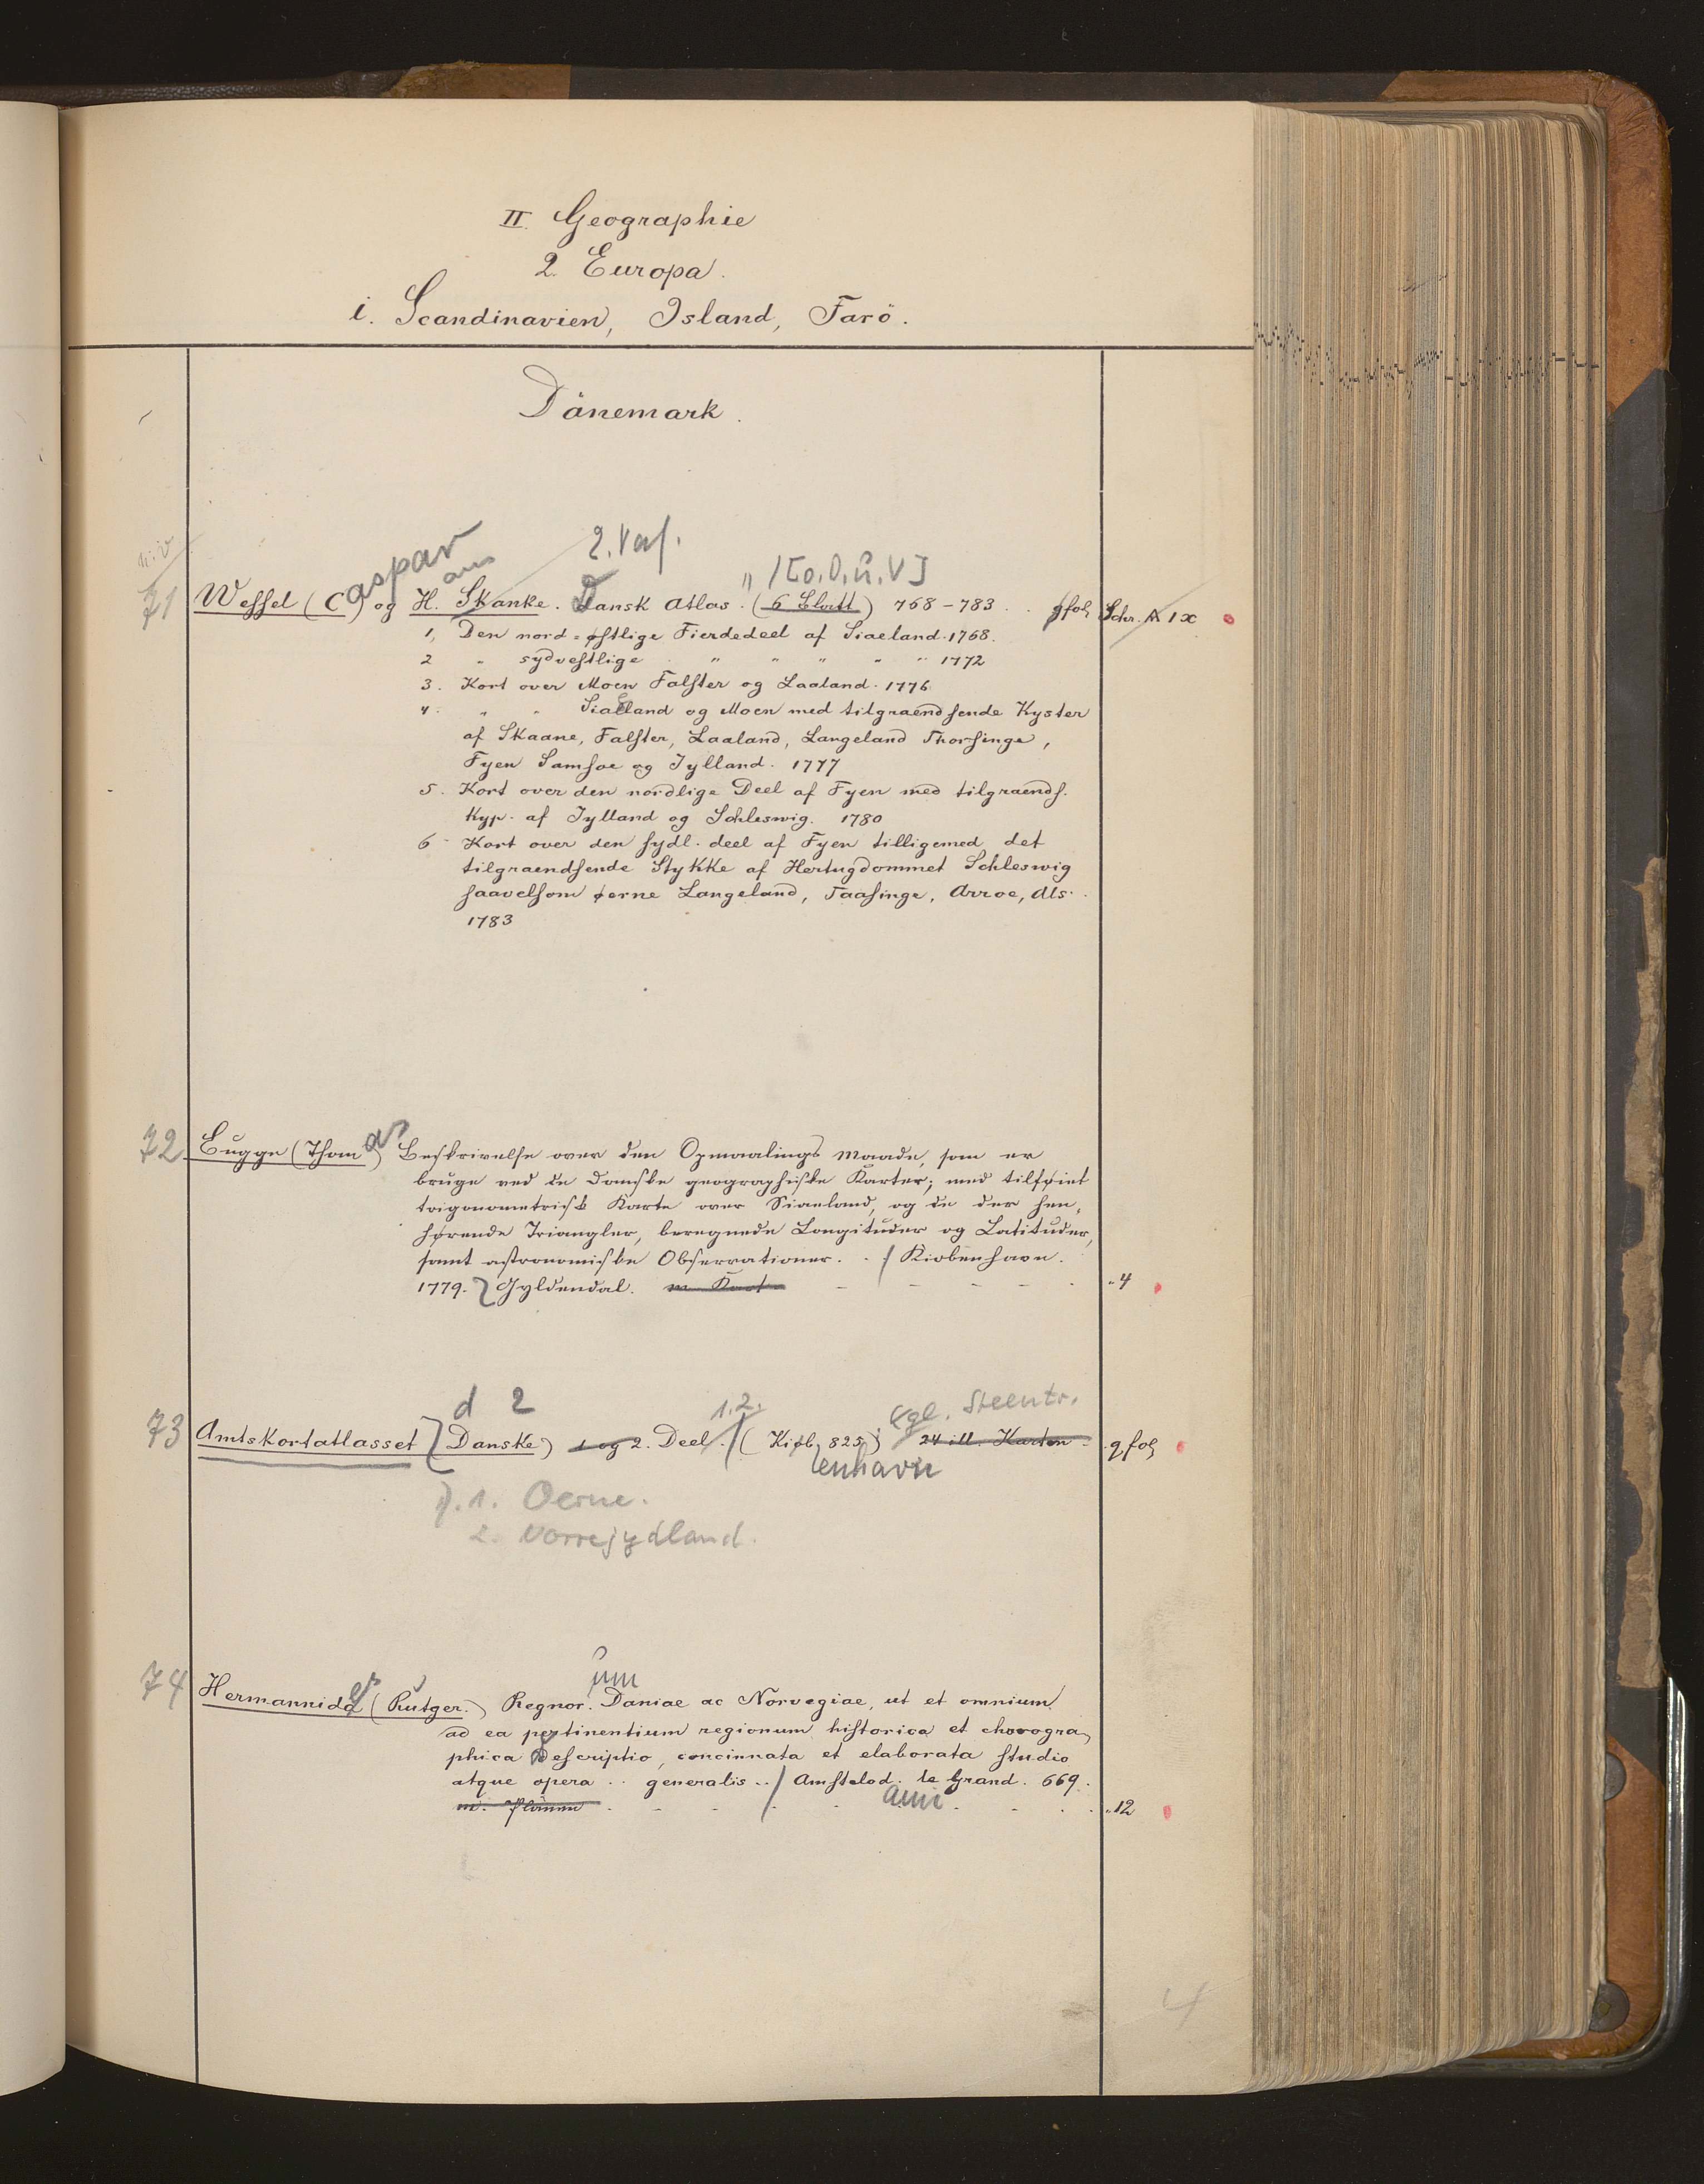 II. Geographie
2. Europa.
i. Scandinavien, Island, Farö.
Dänemark.
2. Verf.
/[o.O.u.V]
71 Wessel (Caspar) og Hans Skanke. Dansk Atlas. (6 Blatt) 768-783 . . gfol Schr. A 1x
1, Den nord=østlige Fierdedeel af Siaeland. 1768.
2 " sydvestlige " " " " " 1772
3. Kort over Moen Falster og Laaland. 1776
4. " " Siaelland og Moen med tilgraendsende Kyster
af Skaane, Falster, Laaland, Langeland Thorsinge,
Fyen Samsoe og Jylland. 1777
5. Kort over den nordlige Deel af Fyen med tilgraends.
Kyp. af Jylland og Schleswig. 1780
6 Kort over den sydl. deel af Fyen tilligemed det
tilgraendsende Stykke af Hertugdommet Schleswig
saavelsom øerne Langeland, Taasinge, Arroe, Als.
1783
72 Bugge (Thomas) Beskrivelse over den Opmaalings Maade, som er
bruge ved de Danske geographiske Karter; med tilføiet
trigonometrisk Karte over Siaeland, og de der hen,
hørende Triangler, beregnede Longituder og Latituder,
samt astronomiske Observationer. . / Kiobenhavn.
1779. Gyldendal. m. Kart - - - - . "4
d 2 1.2. Kgl. Steentr.
73 Amtskortatlasset (Danske) 1 og 2. Deel. / (Kiøb, 825) 24 ill. Karten. g,fol
enhavn
1. Oerne.
2. Norrejydland.
um
74 Hermannides (Rutger.) Regnor. Daniae ac Norvegiae, ut et omnium
ad ea pertinentium regionum historica et chorogra,
phica Descriptio, concinnata et elaborata studio
atque opera . . generalis . . / Amstelod. le Grand. 669.
ami
m. Planen . . . . . "12
4